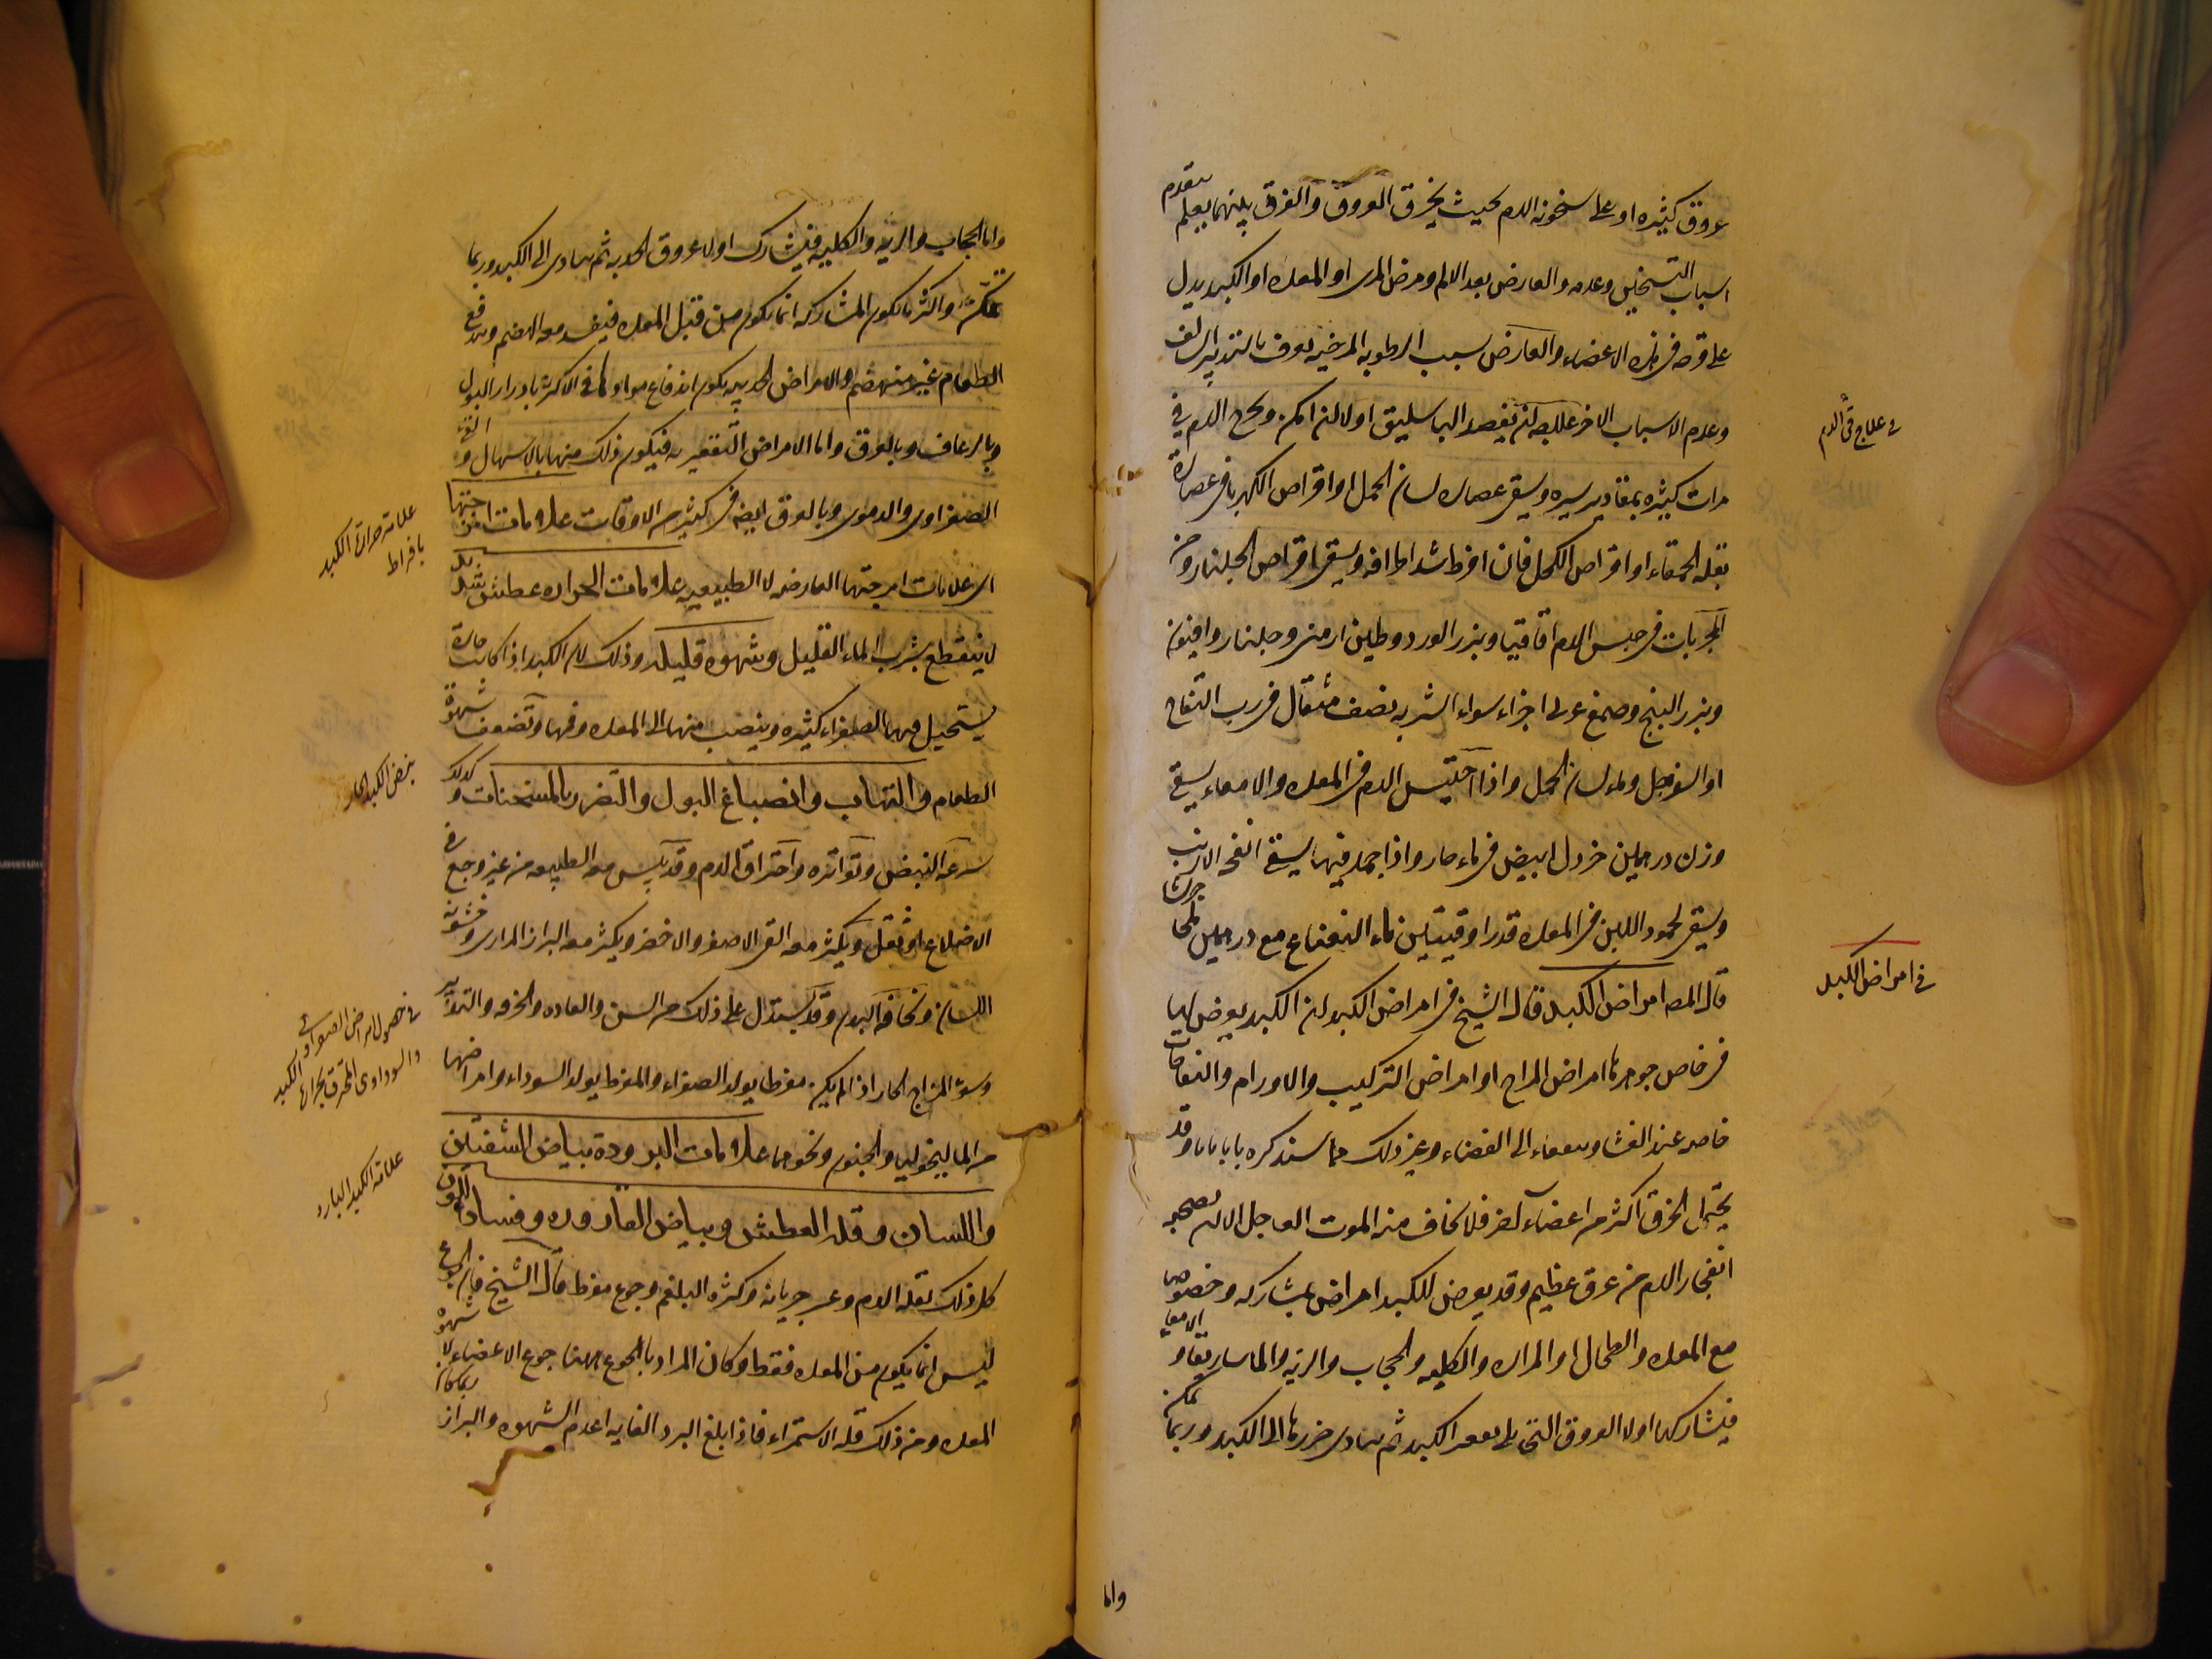 عروق كثيره او على سخونه الدم بحيث يخرق العروق والفرق بينهما يعلم بتقدم
اسباب التسخين وعدمه والعارض بعد الالم ومرض المرى او المعده او الكبد يدل
على قرحه فى هذه الاعضاء والعارض بسبب الرطوبه المرخيه يعرف بالتدبير السالف
وعدم الاسباب الاخر علاجه ان يفصد الباسليق اولا ان امكن ويخرج الدم فى
مرات كثيره بمقادير يسيره ويسقى عصاره لسان الحمل او اقراص الكهربا فى عصارة
بقله الحمقاء او اقراص الكحل فان افرط شد اطرافه ويسقى اقراص الجلنار ومن
المجربات فى حبس الدم اقاقيا وبزر الورد وطين ارمنى وجلنار وافيون
وبزر البنج وصمغ عربى اجزاء سواء الشربه نصف مثقال فى رب التفاح
او السفرجل وماء لسان الحمل واذا احتبس الدم فى المعده والامعاء يسقى
وزن درهمين خردل ابيض فى ماء حار واذا جمد فيها يسقى انفحه الارنب
ويسقى لجمود اللبن فى المعده قدر اوقيتين ماء النعناع مع درهمين ملحا جريشا
قال المص امراض الكبد قال الشيخ فى امراض الكبد ان الكبد يعرض لها
فى خاص جوهرها امراض المزاج او امراض التركيب والاورام والنفاخات
خاصه عند الغشا وينفقاء الى الفضاء وغير ذلك مما سنذكره بابا بابا وقد
يحتمل الخرق اكثر من اعضاء اخر فلا يخاف منه الموت العاجل الا ان يصحبه
انفجار الدم من عرق عظيم وقد يعرض للكبد امراض بمشاركه وخصوصا
مع المعده والطحال او المراره والكليه والحجاب والريه والماساريقا والامعا
فيشاركها اولا العروق التى يلى تقعير الكبد ثم يتادى ضررها الى الكبد وربما تمكن
واما
فى علاج قئ الدم
فى امراض الكبد
واما الحجاب والريه والكليه فيشارك اولا عروق الحدبه ثم يتادى الى الكبد وربما
تمكن واكثر ما تكون المشاركه انما تكون من قبل المعده فيفسد معه الهضم ويندفع
الطعام غير منهضم والامراض الحدبيه يكون اندفاع موادها فى الاكثر بادرار البول
وبالرعاف وبالعرق واما الامراض التقعيريه فيكون ذلك منها بالاسهال والقئ
الصفراوى والدموى وبالعرق ايضه فى كثير من الاوقات علامات امزجتها
اى علامات امزجتها العارضه لا الطبيعيه علامات الحراره عطش شديد
لا ينقطع بشرب الماء القليل وشهوه قليله وذلك لان الكبد اذا كانت حارة
يستحيل فيها الصفراء كثيره وينصب منها الى المعده وفمها وتضعف شهوة
الطعام والتهاب وانصباغ البول والتضرر بالمسخنات وكذلك
سرعه النبض وتواتره واحتراق الدم وقد يبس معه الطبيعه من غير وجع فى
الاضلاع او ثقل ويكثر معه القئ الاصفر والاخضر ويكثر معه البراز المرارى وخشونه
اللسان ونحافه البدن وقد يستدل على ذلك من السن والعاده والحرفه والتدابير
وسوء المزاج الحار اذا لم يكن مفرطا يولد الصفراء والمفرط يولد السوداء وامراضها
من الماليخوليا والجنون ونحوهما علامات البرودة بياض الشفتين
واللسان وقله العطش وبياض القاروره وفساد اللون
كل ذلك لقله الدم وعسر جريانه وكثره البلغم وجوع مفرط قال الشيخ فان الجوع
ليس انما يكون من المعده فقط وكان المراد بالجوع ههنا جوع الاعضاء لا شهوة
المعده ومن ذلك قله الاستمراء فاذا بلغ البرد الغايه اعدم الشهوه والبراز ربما كان
علامة حرارة الكبد
بافراط
نبض الكبد الحار
فى حصول امراض الصفراوى
والسوداوى المحرق بحرارة الكبد
علامة الكبد البارد